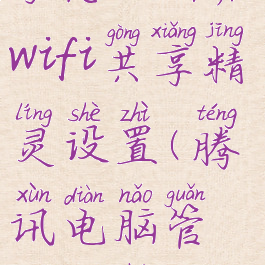 gòng xiǎng jīng
wifi共享精
líng shè zhì téng
灵设置(腾
xùn diàn nǎo guǎn
讯电脑管